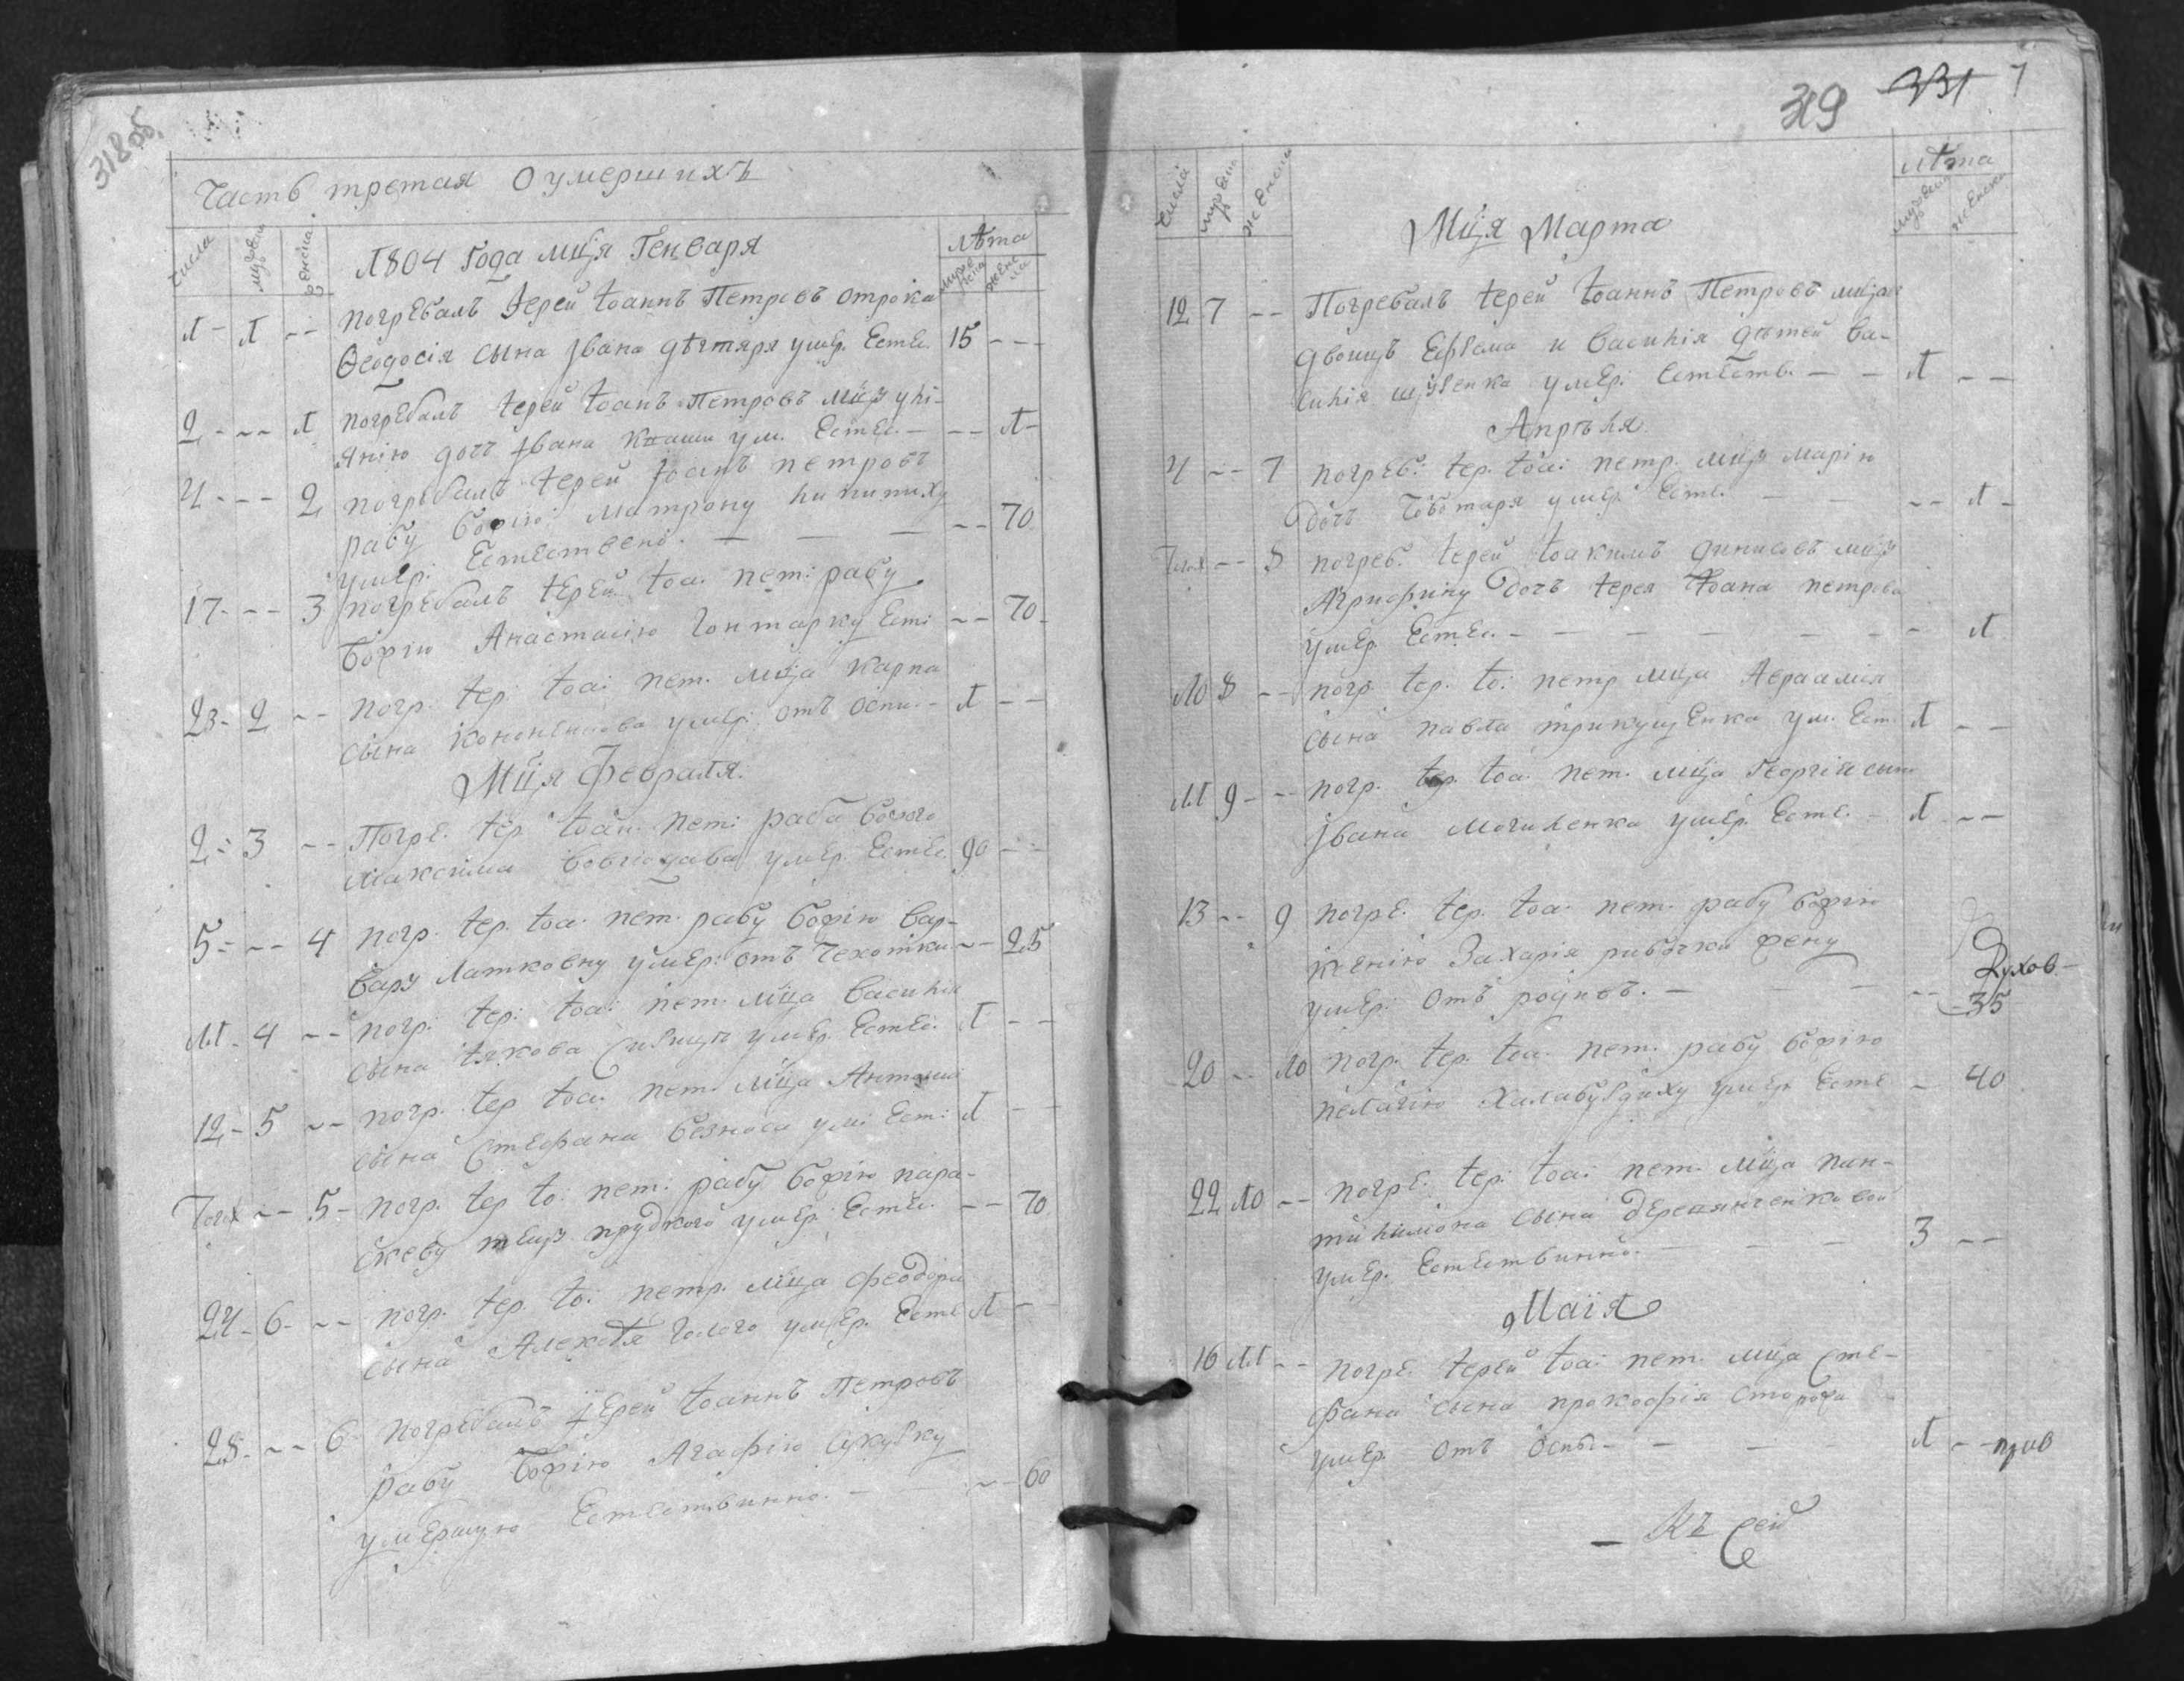 318об.
Часть третая О умершихъ
числа
Л804 Года мц҃я Генваря
лѣта
Л - Л -- погребалъ Іерей Іоаннъ Петровъ отрока
Ѳеодосія сына Івана дѣгтяря умер. Есте. 15 --
2 --- Л погребалъ Іерей Іоанъ Петровъ млцу улі-
янію дочъ Івана ум. Есте. -- Л-
4 --- 2 погребалъ Іерей Іоанъ петровъ
рабу божію Матрону
умер: Естествено. — — — -- 70
17 --- 3 погребалъ Іерей Іоа. пет: рабу
божію Анастасію Гонтарку Ест: -- 70-
23 - 2 -- погр. Іер: Іоа: пет. млца карпа
сына умер: отъ оспи. - Л --
Мц҃я Февраля.
2 - 3 -- Погре. Іер. Іоан. пет: раба божого
Максима умер. Есте. 90 --
5 --- 4 погр. Іер. Іоа. пет. рабу божію вар-
вару Латковну умер: отъ чехотки -- 25
ЛЛ - 4 -- погр: Іер: Іоа: пет. млца василія
сына Іякова умер. Есте. Л --
12 - 5 -- погр. Іер Іоа. пет. млца Антонія
сына Стефана безноса ум: Ест: Л --
-- 5- погр. Іер Іо: пет: рабу божію пара-
скеву прудкого умер: Есте. -- 70
24 - 6 - -- погр. Іер. Іо: петр. млца феодора
сына Алексѣя Голого умер. Есте Л -
28 --- 6 погребалъ Іерей Іоаннъ Петровъ
рабу Божію Агафію
умершую Естественно. — -- 60
319 331 7
числа
лѣта
Мц҃я Марта
12 7 -- Погребалъ Іерей Іоаннъ Петровъ
двоицъ и василія дѣтей ва-
силія умер: Естеств. — — Л --
Апрѣля
4 -- 7 погреб: Іер. Іоа: петр. млцу марію
дочъ Чоботаря умер. Есте. — — -- Л -
-- 8 погреб. Іерей Іоакимъ динисовъ млцу
Агрифину дочъ Іерея Іоана петрова
умер. Есте. - — — — — - - Л
Л0 8 -- погр. Іер. Іо: петр млца Авраамія
сына павла ум. Ест. Л --
ЛЛ 9 - -- погр. Іер. Іоа. пет. млца Георгія сына
Івана Могиленка умер. Есте. - Л --
13 -- 9 погре. Іер. Іоа. пет. рабу божію
ксенію Захарія рибалки жену
умер: отъ родивъ. — — — -- 35
Духов-
20 -- Л0 погр. Іер. Іоа. пет. рабу божію
пелагію умер. Есте - 40
22 Л0 -- погре: Іер: Іоа: пет. млца пан-
тилимона сына
умер. Естественно. — — — 3 --
Маія
16 ЛЛ -- погре. Іерей Іоа: пет. млца Сте-
фана сына прокофія Сторожа
умер. отъ оспы- — — Л --
— Къ сей